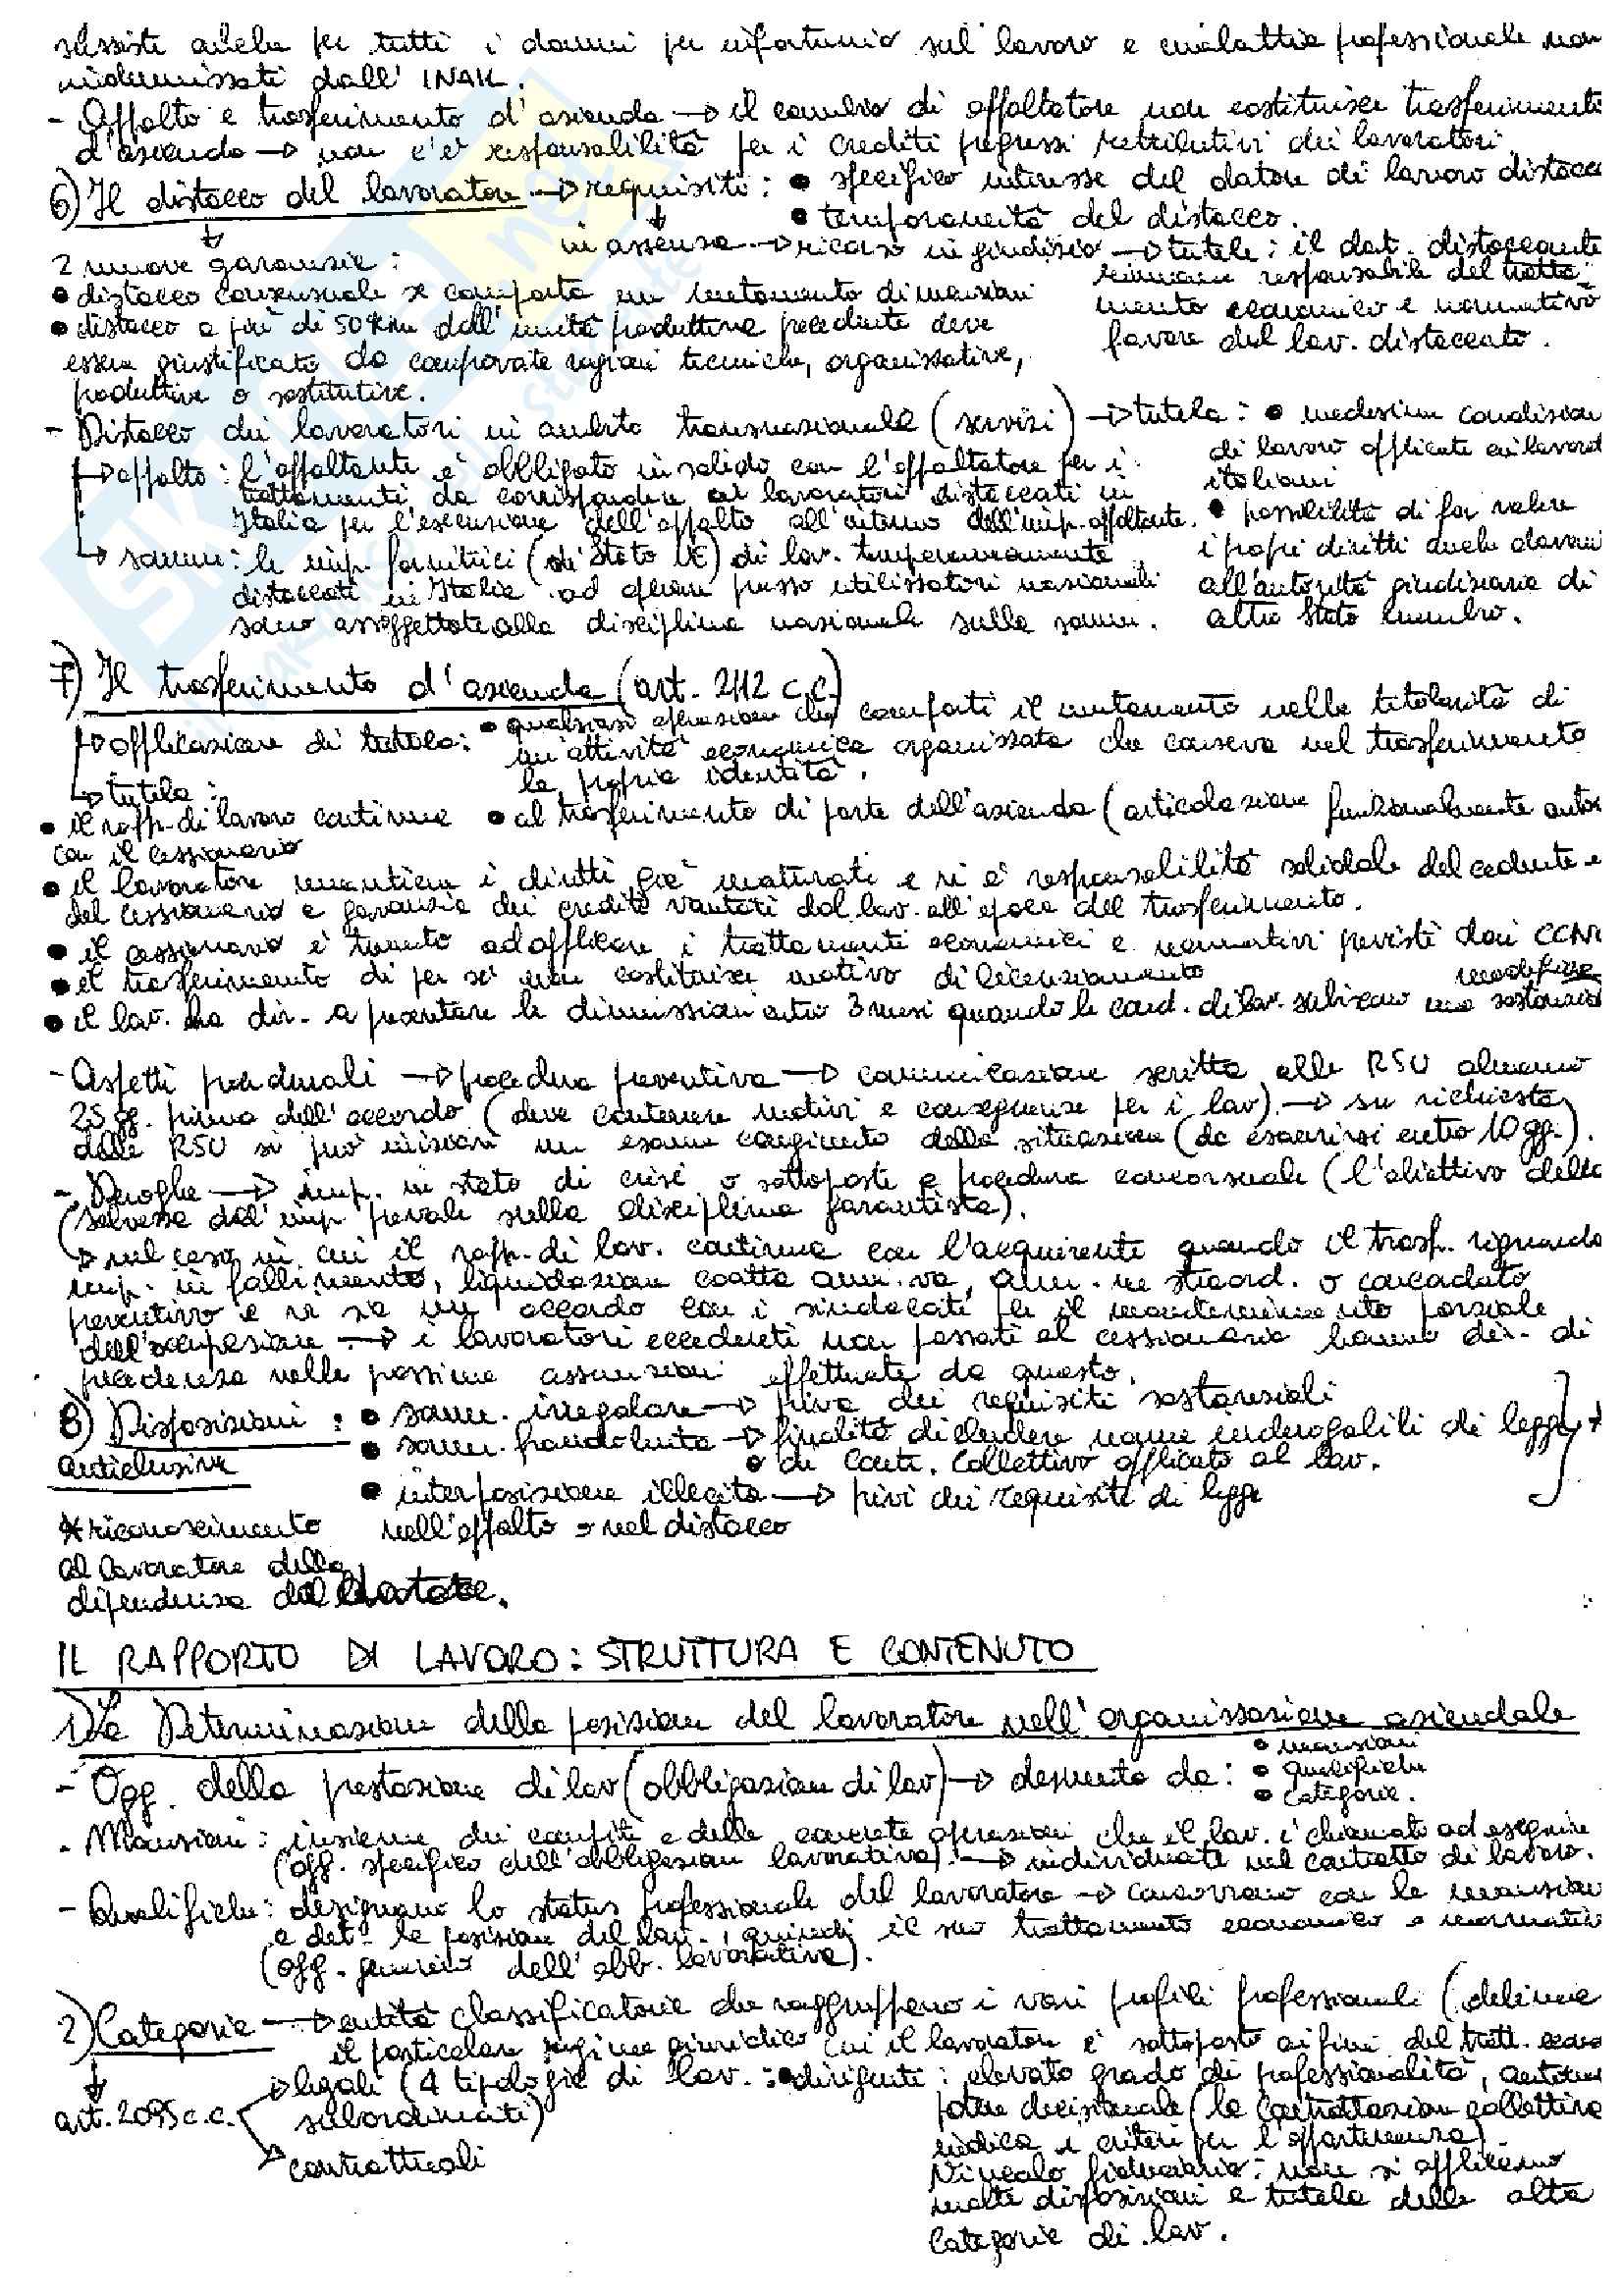 sussiste anche per tutti i danni per infortunio sul lavoro e malattia professionale non
indennizzati dall'INAIL.
- Appalto e trasferimento d'azienda → il cambio di appaltatore non costituisce trasferimento
d'azienda → non c'è responsabilità per i crediti pregressi retributivi dei lavoratori.
6) Il distacco del lavoratore → requisiti: • specifico interesse del datore di lavoro distacca
• temporaneità del distacco.
in assenza → ricorso in giudizio → tutele: il dat. distaccante
rimane responsabile del tratta-
mento economico e normativo
favore del lav. distaccato.
2 nuove garanzie:
• distacco consensuale se comporta un mutamento di mansioni
• distacco a più di 50 km dall'unità produttiva precedente deve
essere giustificato da comprovate ragioni tecniche, organizzative,
produttive o sostitutive.
- Distacco dei lavoratori in ambito transnazionale (servizi) → tutela: • medesime condizioni
di lavoro applicate ai lavorat
italiani
• possibilità di far valere
i propri diritti anche davanti
all'autorità giudiziaria di
altro Stato membro.
→ appalto: l'appaltante è obbligato in solido con l'appaltatore per i
trattamenti da corrispondere ai lavoratori distaccati in
Italia per l'esecuzione dell'appalto all'interno dell'imp. appaltante.
→ somm: le imp. fornitrici (di Stato UE) di lav. temporaneamente
distaccati in Italia ad operare presso utilizzatori nazionali
sono assoggettate alla disciplina nazionale sulla somm.
7) Il trasferimento d'azienda (art. 2112 c.c.)
→ applicazione di tutela: • qualsiasi operazione che comporti il mutamento nella titolarità di
un'attività economica organizzata che conserva nel trasferimento
la propria identità.
• al trasferimento di parte dell'azienda (articolazione funzionalmente auton
→ tutele:
• il rapp. di lavoro continua
con il cessionario
• il lavoratore mantiene i diritti già maturati e vi è responsabilità solidale del cedente e
del cessionario a garanzia dei crediti vantati dal lav. all'epoca del trasferimento.
• il cessionario è tenuto ad applicare i trattamenti economici e normativi previsti dai CCNL
• il trasferimento di per sé non costituisce motivo di licenziamento
• il lav. ha dir. a presentare le dimissioni entro 3 mesi quando le cond. di lav. subiscono una modifica sostanzial
- Aspetti procedurali → procedura preventiva → comunicazione scritta alle RSU almeno
25 gg. prima dell'accordo (deve contenere motivi e conseguenze per i lav) → su richiesta
dalle RSU si può iniziare un esame congiunto della situazione (da esaurirsi entro 10 gg.).
- Deroghe → imp. in stato di crisi o sottoposte a procedura concorsuale (l'obiettivo della
salvezza dell'imp prevale sulla disciplina garantista).
→ nel caso in cui il rapp. di lav. continua con l'acquirente quando il trasf. riguarda
imp. in fallimento, liquidazione coatta amm.va, amm.ne straord. o concordato
preventivo e vi sia un accordo con i sindacati per il mantenimento parziale
dell'occupazione → i lavoratori eccedenti non passati al cessionario hanno dir. di
precedenza nelle prossime assunzioni effettuate da questo.
8) Disposizioni : • somm. irregolare → priva dei requisiti sostanziali
antielusive • somm. fraudolenta → finalità di eludere norme inderogabili di legge *
• di contr. collettivo applicato al lav.
• interposizione illecita → privi dei requisiti di legge
nell'appalto o nel distacco
* riconoscimento
al lavoratore della
dipendenza dal datore.
IL RAPPORTO DI LAVORO: STRUTTURA E CONTENUTO
1) La Determinazione della posizione del lavoratore nell'organizzazione aziendale
- Ogg. della prestazione di lav (obbligazione di lav) → desunto da: • mansioni
• qualifiche
• categorie.
- Mansioni: insieme dei compiti e delle concrete operazioni che il lav. è chiamato ad eseguire
(ogg. specifico dell'obbligazione lavorativa) → individuate nel contratto di lavoro.
- Qualifiche: designano lo status professionale del lavoratore → concorrono con le mansioni
a det. la posizione del lav., quindi il suo trattamento economico e normativo
(ogg. generico dell'obb. lavorativa).
2) Categorie → entità classificatorie che raggruppano i vari profili professionali (delinea
il particolare regime giuridico cui il lavoratore è sottoposto ai fini del tratt. econo
art. 2095 c.c. → legali (4 tipologie di lav. : • dirigenti: elevato grado di professionalità, autonom
subordinati) potere decisionale (la contrattazione collettiva
indica i criteri per l'appartenenza).
Vincolo fiduciario: non si applicano
molte disposizioni a tutela delle altre
categorie di lav.
→ contrattuali